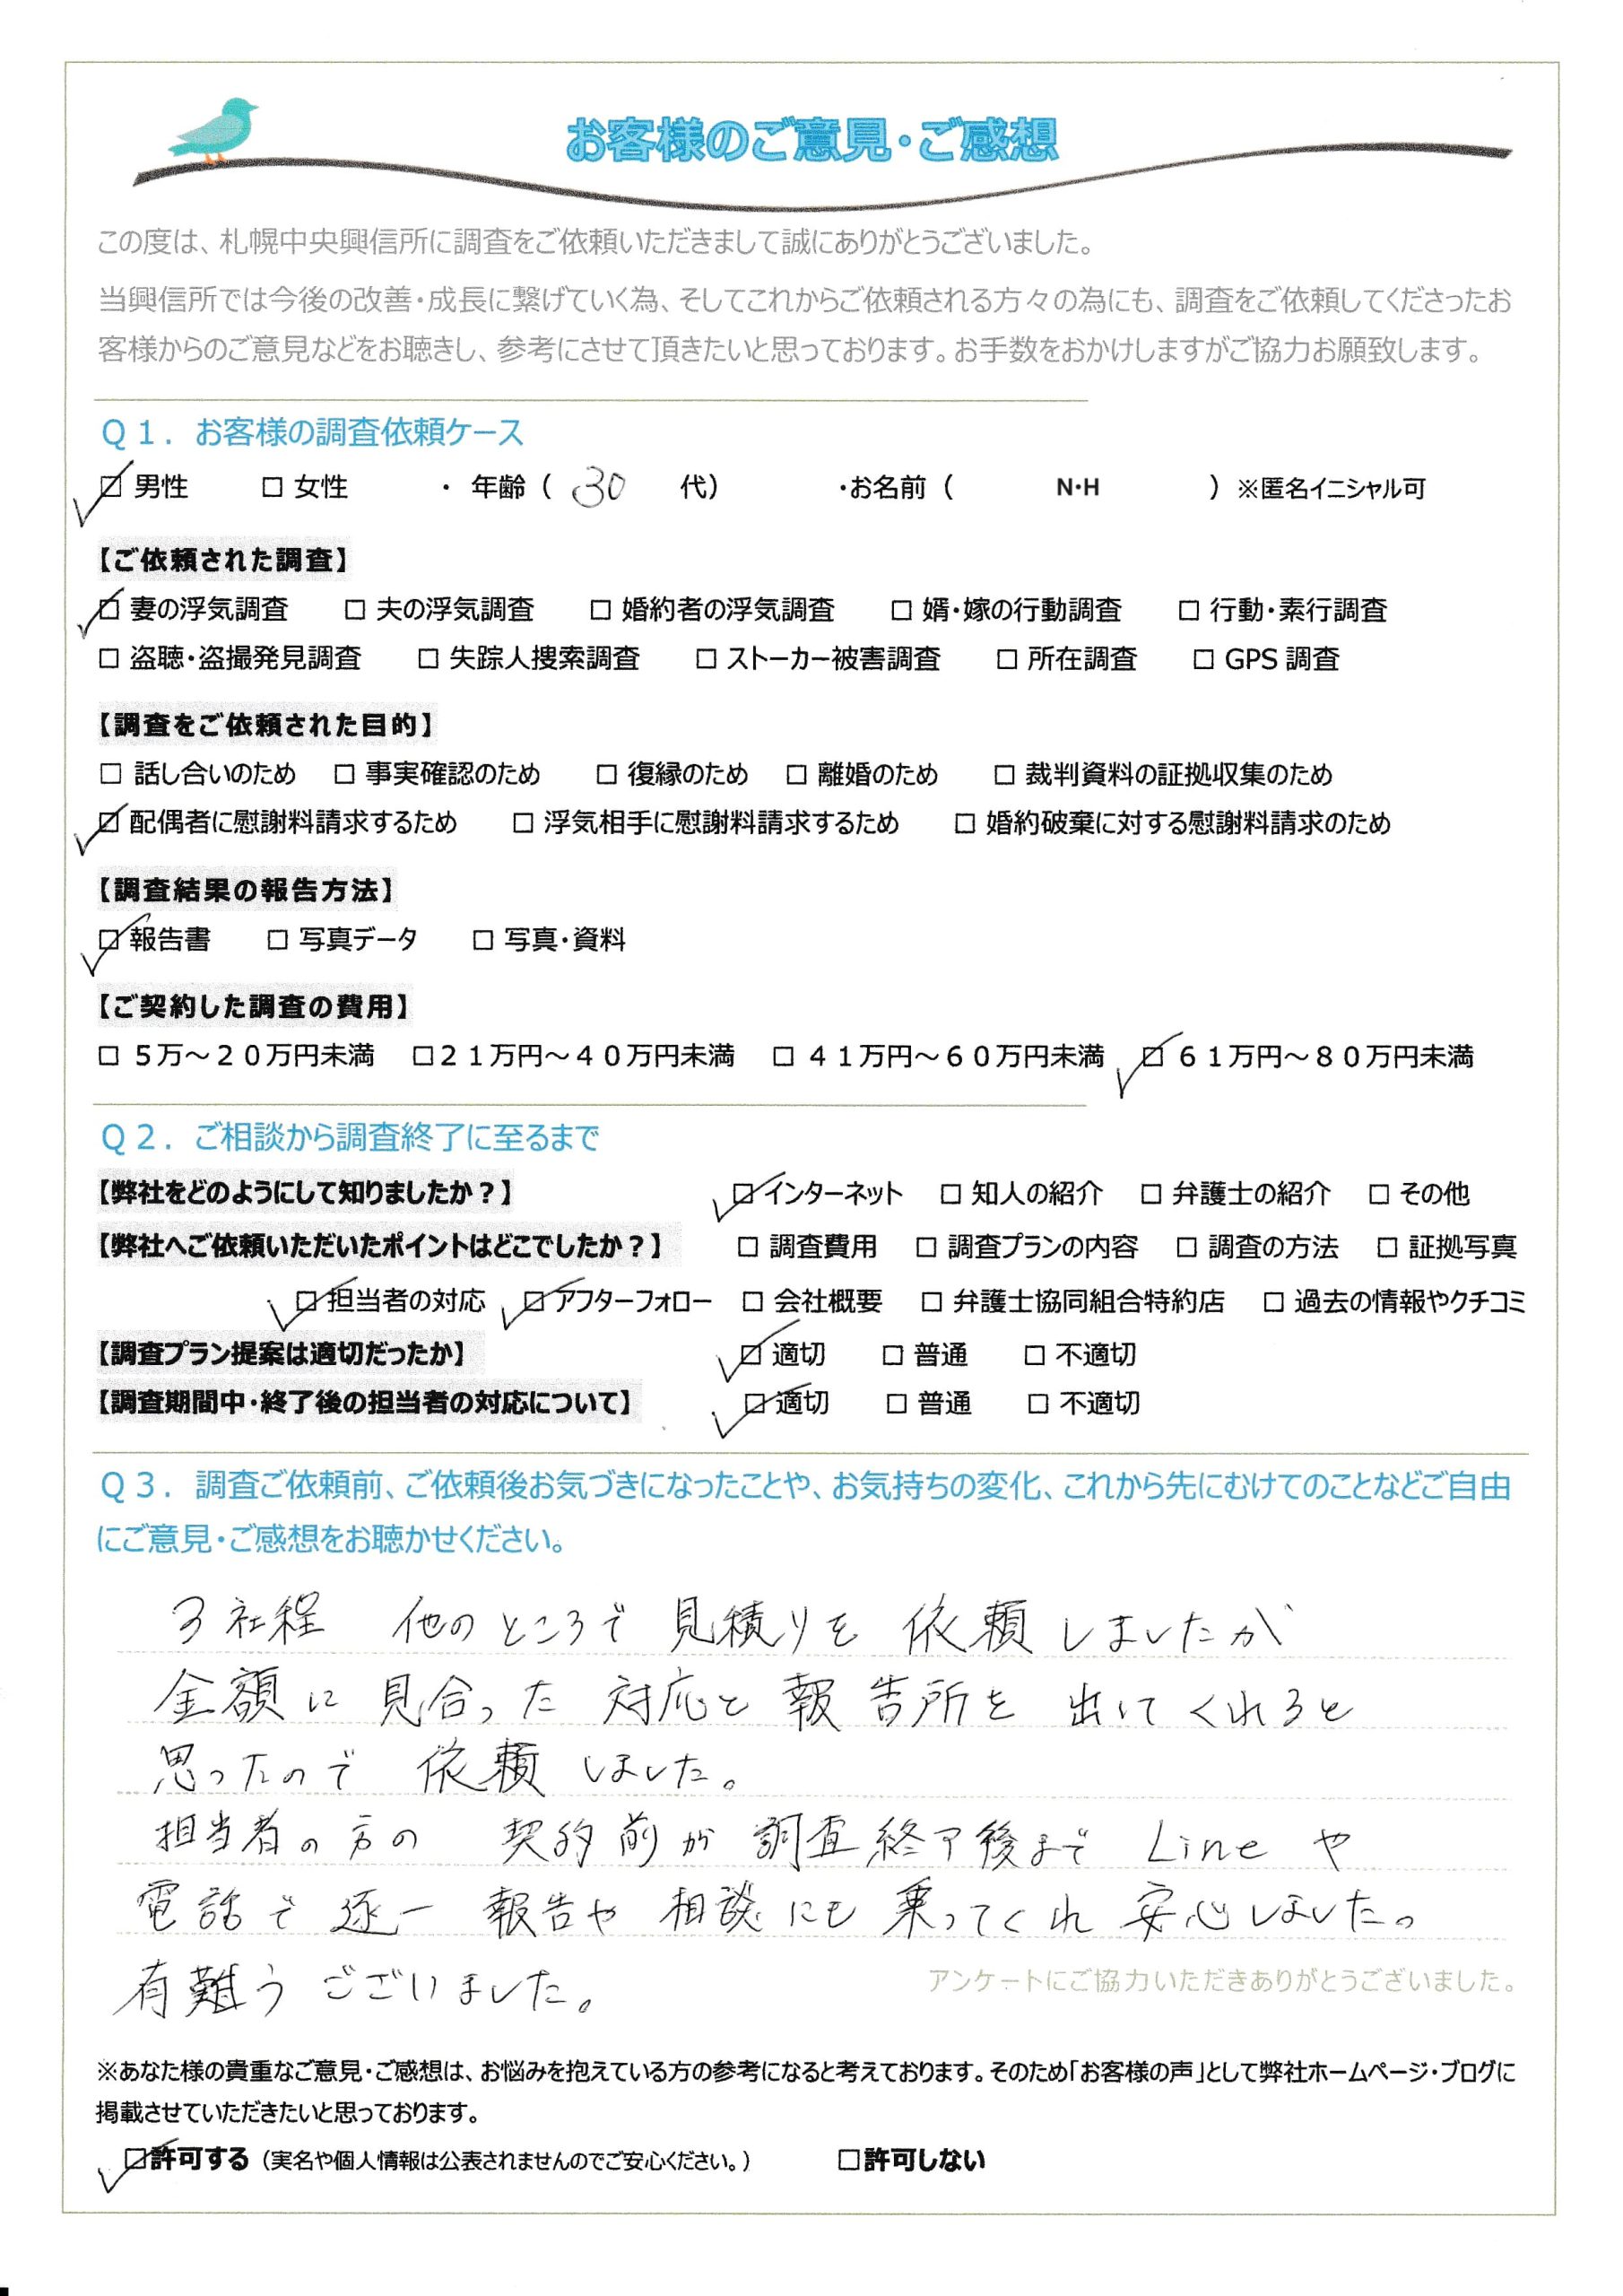 お客様のご意見・ご感想
この度は、札幌中央興信所に調査をご依頼いただきまして誠にありがとうございました。
当興信所では今後の改善・成長に繋げていく為、そしてこれからご依頼される方々の為にも、調査をご依頼してくださったお
客様からのご意見などをお聴きし、参考にさせて頂きたいと思っております。お手数をおかけしますがご協力お願致します。
Q1. お客様の調査依頼ケース
☑ 男性 □ 女性 ・ 年齢（ 30 代） ・お名前（ N・H ）※匿名イニシャル可
【ご依頼された調査】
☑ 妻の浮気調査 □ 夫の浮気調査 □ 婚約者の浮気調査 □ 婿・嫁の行動調査 □ 行動・素行調査
□ 盗聴・盗撮発見調査 □ 失踪人捜索調査 □ ストーカー被害調査 □ 所在調査 □ GPS 調査
【調査をご依頼された目的】
□ 話し合いのため □ 事実確認のため □ 復縁のため □ 離婚のため □ 裁判資料の証拠収集のため
☑ 配偶者に慰謝料請求するため □ 浮気相手に慰謝料請求するため □ 婚約破棄に対する慰謝料請求のため
【調査結果の報告方法】
☑ 報告書 □ 写真データ □ 写真・資料
【ご契約した調査の費用】
□ 5万～20万円未満 □21万円～40万円未満 □ 41万円～60万円未満 ☑ 61万円～80万円未満
Q2. ご相談から調査終了に至るまで
【弊社をどのようにして知りましたか？】 ☑ インターネット □ 知人の紹介 □ 弁護士の紹介 □ その他
【弊社へご依頼いただいたポイントはどこでしたか？】 □ 調査費用 □ 調査プランの内容 □ 調査の方法 □ 証拠写真
☑ 担当者の対応 ☑ アフターフォロー □ 会社概要 □ 弁護士協同組合特約店 □ 過去の情報やクチコミ
【調査プラン提案は適切だったか】 ☑ 適切 □ 普通 □ 不適切
【調査期間中・終了後の担当者の対応について】 ☑ 適切 □ 普通 □ 不適切
Q3. 調査ご依頼前、ご依頼後お気づきになったことや、お気持ちの変化、これから先にむけてのことなどご自由
にご意見・ご感想をお聴かせください。
3社程 他のところで 見積りを 依頼しましたが
金額に 見合った 対応と 報告所を 出してくれると
思ったので 依頼しました。
担当者の方の 契約前が 調査終了後まで Line や
電話で 逐一 報告や 相談にも 乗ってくれ 安心しました。
有難う ございました。
アンケートにご協力いただきありがとうございました。
※あなた様の貴重なご意見・ご感想は、お悩みを抱えている方の参考になると考えております。そのため「お客様の声」として弊社ホームページ・ブログに
掲載させていただきたいと思っております。
☑許可する（実名や個人情報は公表されませんのでご安心ください。） □許可しない